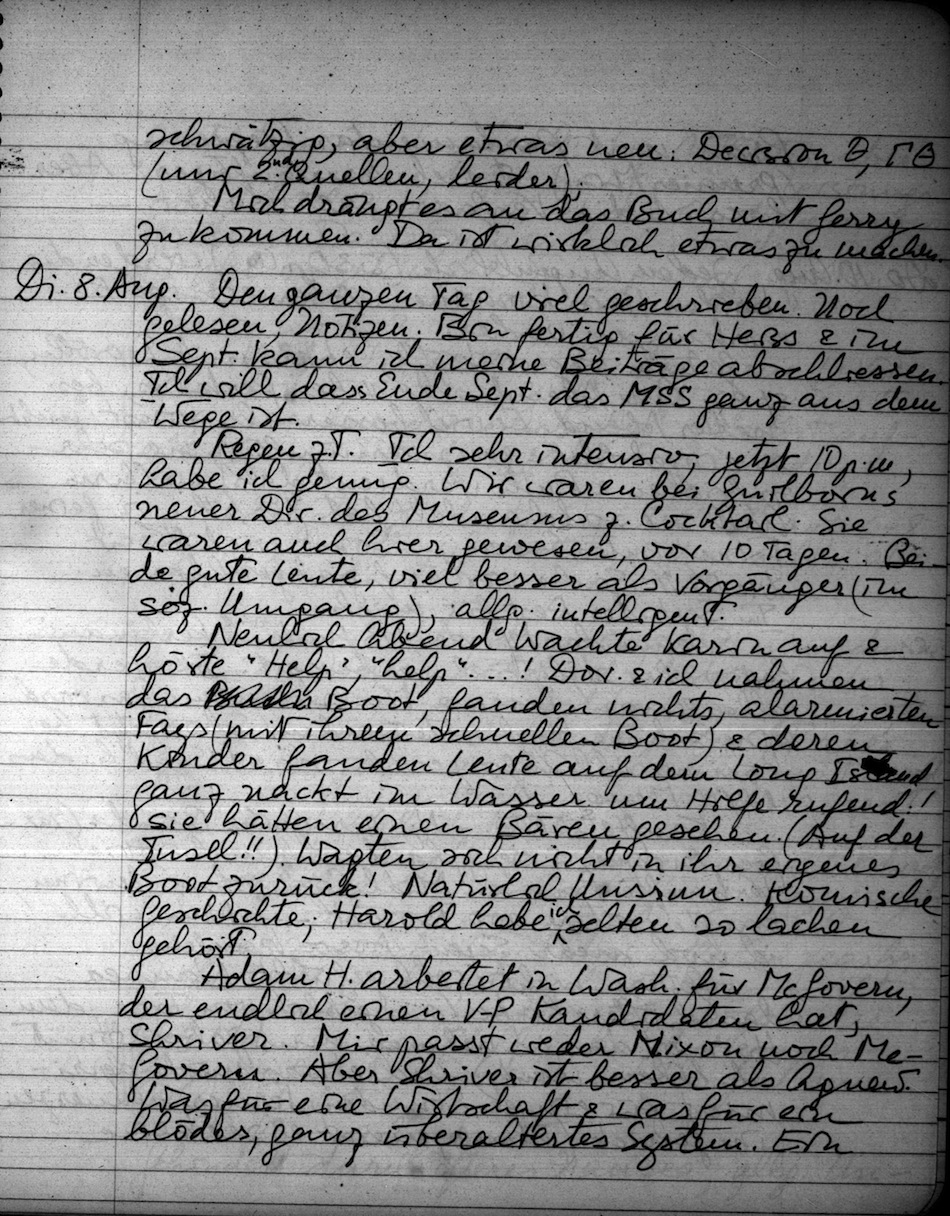 schwätzig, aber etwas neu: Decision θ, Γθ
(nur 2 Quellen, leider).
Mich drängt es an das Buch mit Gerry
zu kommen. Da ist wirklich etwas zu machen.
Di. 8. Aug. Den ganzen Tag viel geschrieben. Noch
gelesen, Notizen. Bin fertig für Herbs & im
Sept. kann ich meine Beiträge abschliessen.
Ich will dass Ende Sept. das MSS ganz aus dem
Wege ist.
Regen z.T. Ich sehr intensiv, jetzt 10 p.m,
habe ich genug. Wir waren bei Guilborns
neuer Dir. des Museums z. Cocktail. Sie
waren auch hier gewesen, vor 10 Tagen. Bei-
de gute Leute, viel besser als Vorgänger (im
soz. Umgang), allg. intelligent.
Neulich Abend wachte Karin auf &
hörte "Help", "help" ...! Dor. & ich nahmen
das Boot, fanden nichts, alarmierten
Fays (mit ihrem schnellen Boot) & deren
Kinder fanden Leute auf dem Long Island
ganz nackt im Wasser um Hilfe rufend!
Sie hätten einen Bären gesehen. (Auf der
Insel!!). Wagten sich nicht in ihr eigenes
Boot zurück! Natürlich Unsinn. Komische
Geschichte; Harold habe ich selten so lachen
gehört.
Adam H. arbeitet in Wash. für McGovern,
der endlich einen V-P Kandidaten hat,
Shriver. Mir passt weder Nixon noch Mc-
Govern. Aber Shriver ist besser als Agnew.
Was für eine Wirtschaft & was für ein
blödes, ganz überaltertes System. Ein